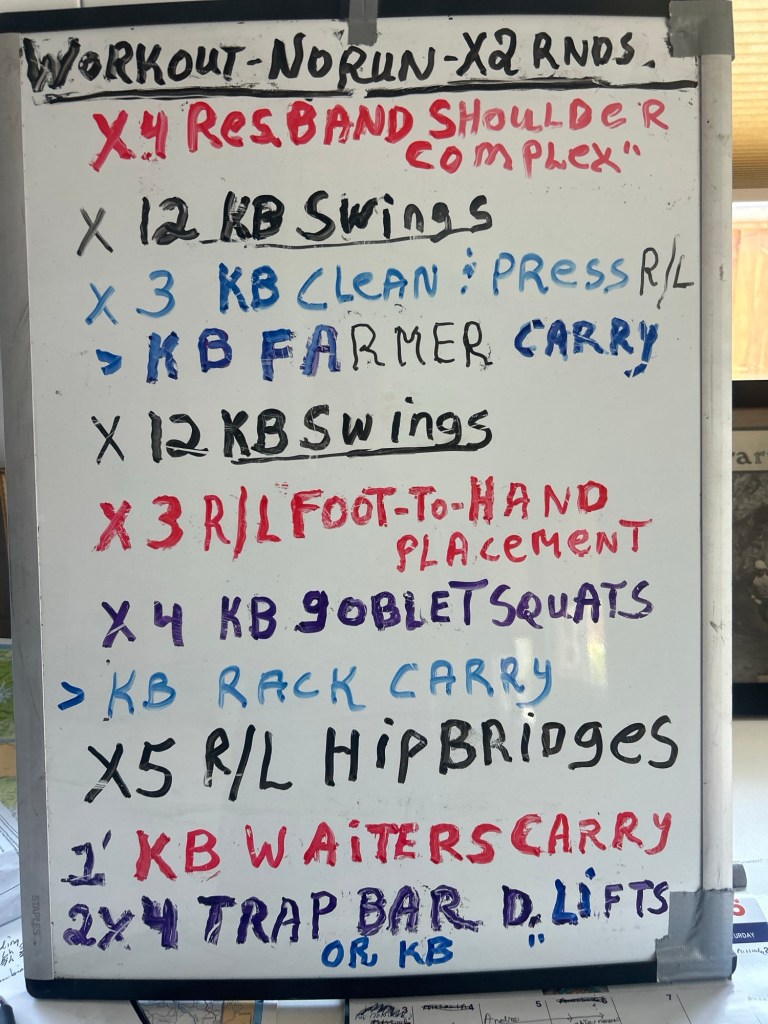 WORKOUT-NO RUN-X2 RNDS.
X4 RES.BAND SHOULDER
COMPLEX"
X 12 KB SWings
X 3 KB CLEAN & PRESS R/L
> KB FARMER CARRY
X 12 KB SWings
X 3 R/L FOOT-TO-HAND
PLACEMENT
X 4 KB gOBLET SQUATS
> KB RACK CARRY
X5 R/L HipBRidges
1' KB WAiTERS CARRY
2X4 TRAP BAR D. LiFTS
OR KB "
STAPLES
5
7